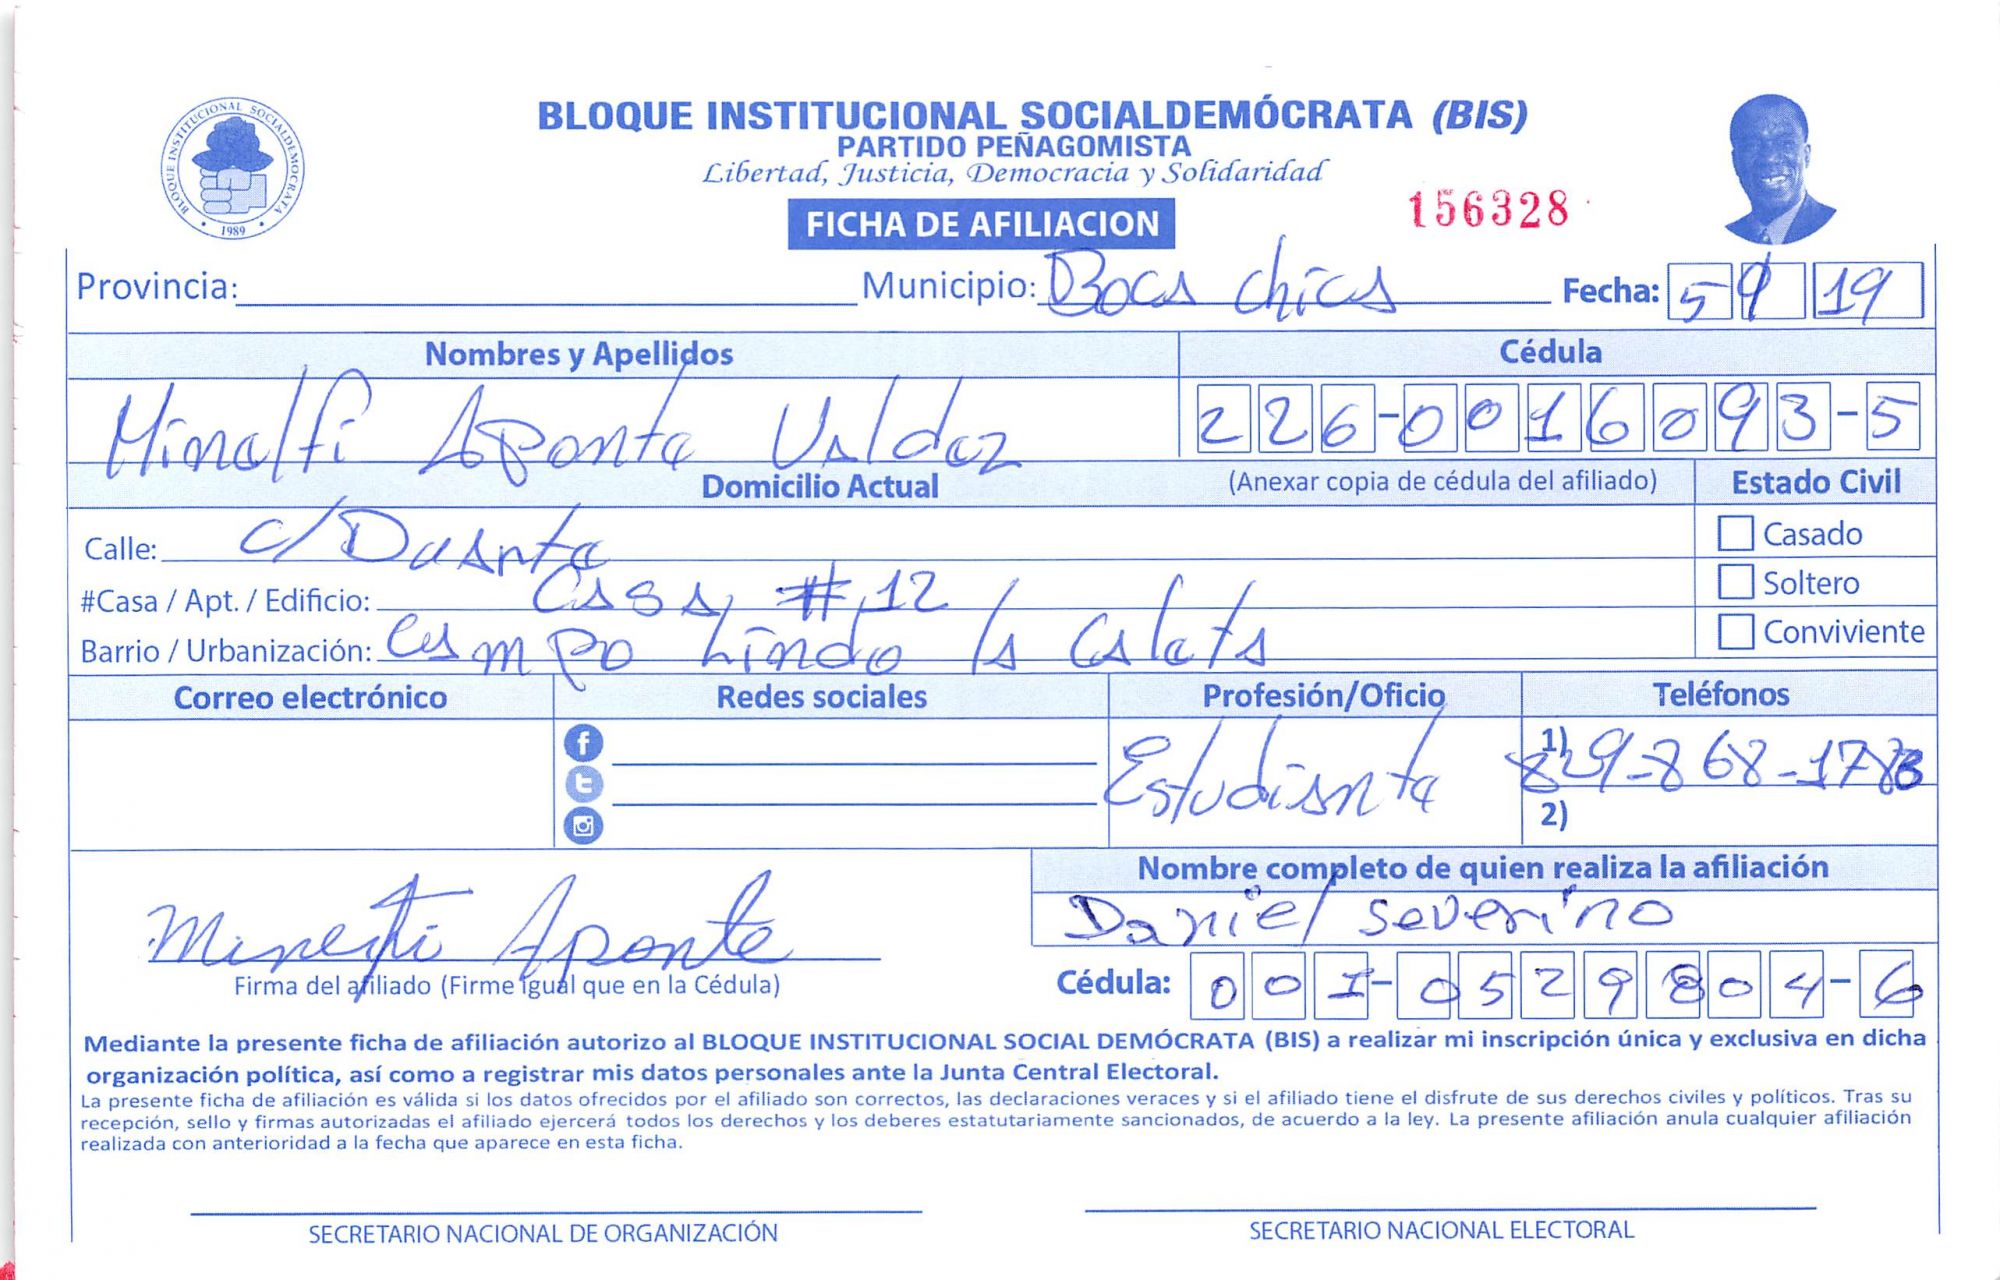 BLOQUE INSTITUCIONAL SOCIALDEMÓCRATA
1989
BLOQUE INSTITUCIONAL SOCIALDEMÓCRATA (BIS)
PARTIDO PEÑAGOMISTA
Libertad, Justicia, Democracia y Solidaridad
156328
FICHA DE AFILIACION
Provincia: Municipio: Boca chica Fecha: 5 9 19
Nombres y Apellidos Cédula
Aponte Valdez 226-0016093-5
Domicilio Actual (Anexar copia de cédula del afiliado) Estado Civil
Calle: c/Duarte Casado
#Casa / Apt. / Edificio: Casa #12 Soltero
Barrio / Urbanización: Campo Lindo la Caleta Conviviente
Correo electrónico Redes sociales Profesión/Oficio Teléfonos
Estudiante 1) 829-868-
2)
Nombre completo de quien realiza la afiliación
Daniel severino
Aponte
Firma del afiliado (Firme igual que en la Cédula) Cédula: 001-0529804-6
Mediante la presente ficha de afiliación autorizo al BLOQUE INSTITUCIONAL SOCIAL DEMÓCRATA (BIS) a realizar mi inscripción única y exclusiva en dicha
organización política, así como a registrar mis datos personales ante la Junta Central Electoral.
La presente ficha de afiliación es válida si los datos ofrecidos por el afiliado son correctos, las declaraciones veraces y si el afiliado tiene el disfrute de sus derechos civiles y políticos. Tras su
recepción, sello y firmas autorizadas el afiliado ejercerá todos los derechos y los deberes estatutariamente sancionados, de acuerdo a la ley. La presente afiliación anula cualquier afiliación
realizada con anterioridad a la fecha que aparece en esta ficha.
SECRETARIO NACIONAL DE ORGANIZACIÓN SECRETARIO NACIONAL ELECTORAL